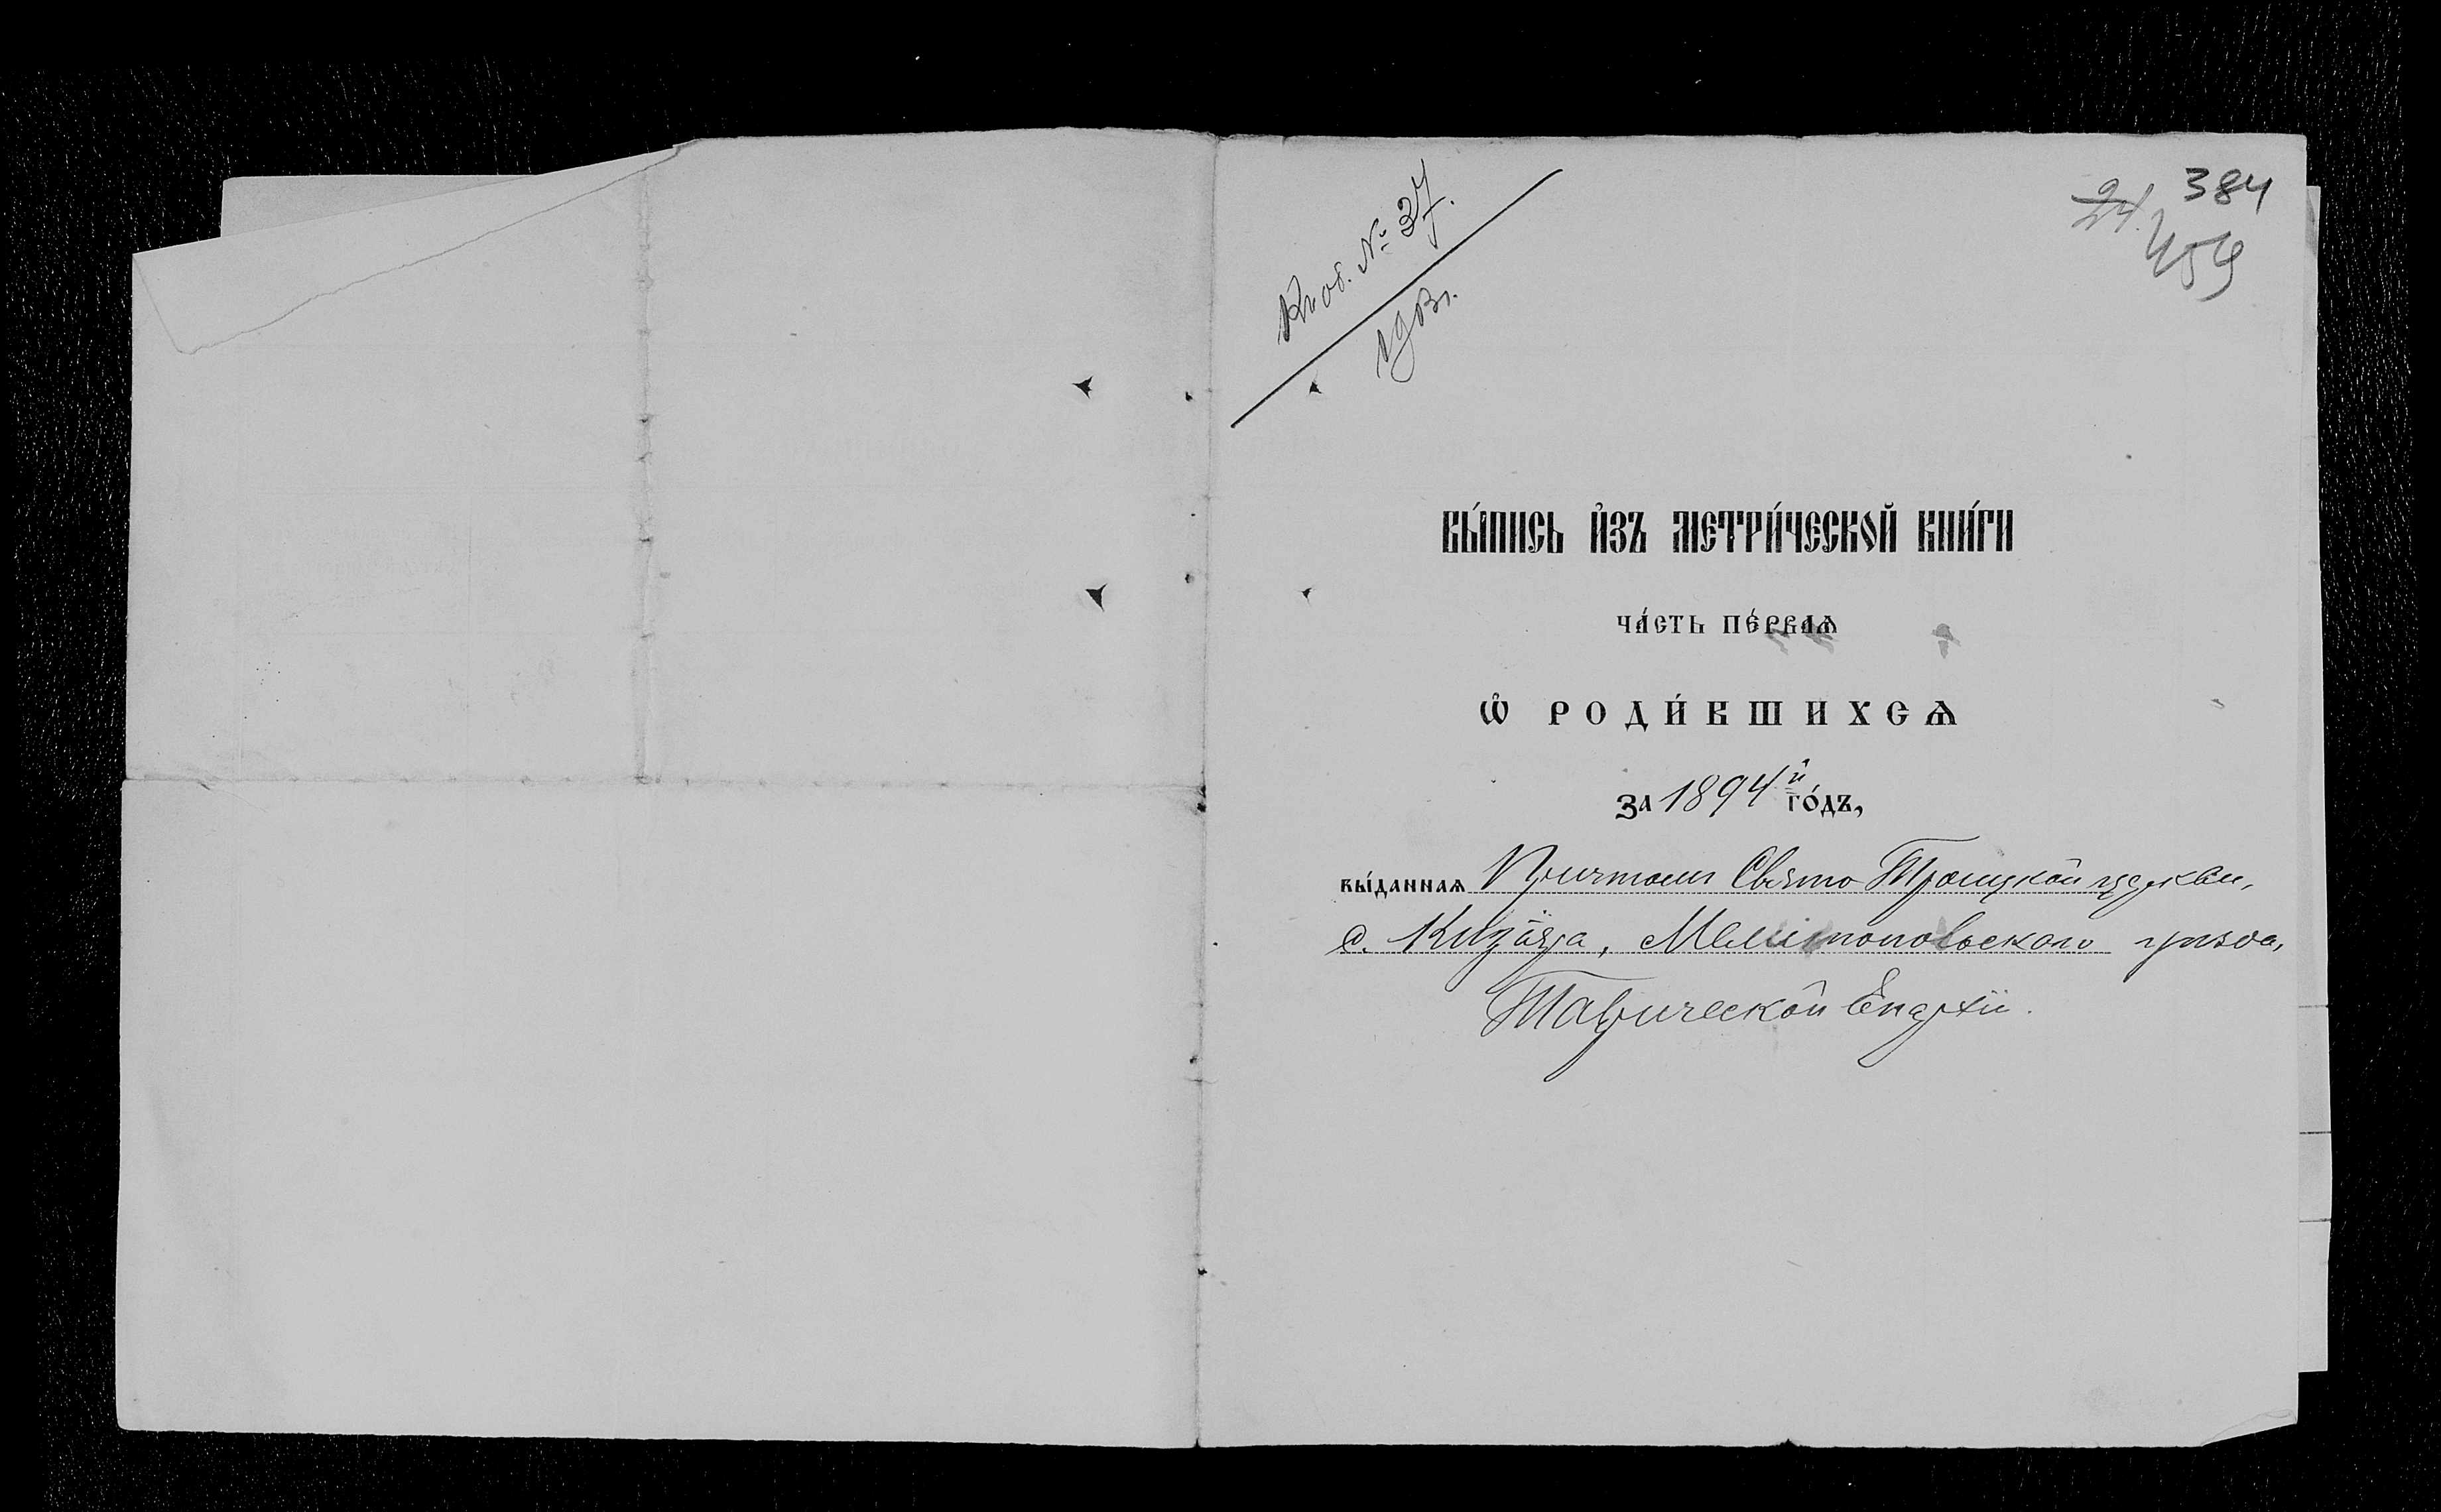 384
24.
459
Къ об. № 37.
ВЫ́ПИСЬ И҆ЗЪ МЕТРИ́ЧЕСКОЙ КНИ́ГИ
ЧА́СТЬ ПЕ́РВАѦ
Ѽ РОДИ́ВШИХСѦ
За 1894й го́дъ,
вы́даннаѧ Причтомъ Свято Троицкой церкви,
с. Кизіяра, Мелитопольскаго уѣзда,
Таврической Епархіи.